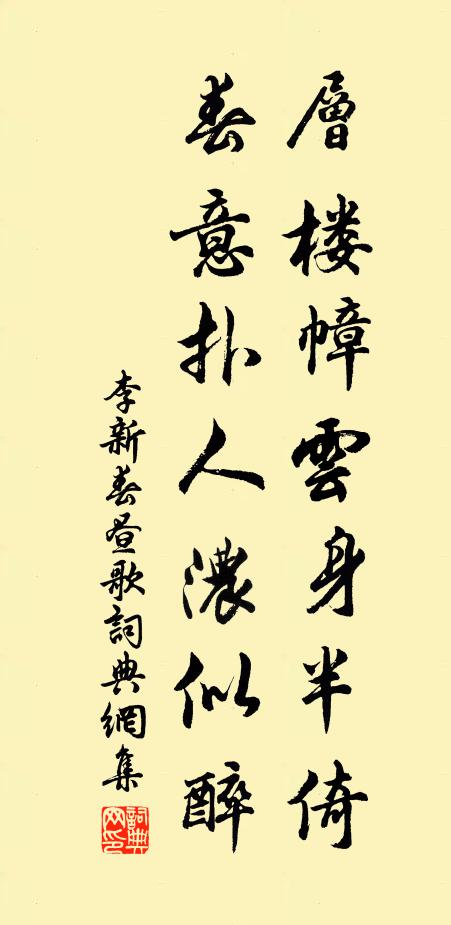 層楼幛雲身半倚
春意扑人濃似醉
李新春昼歌詞典網集
詞典網印